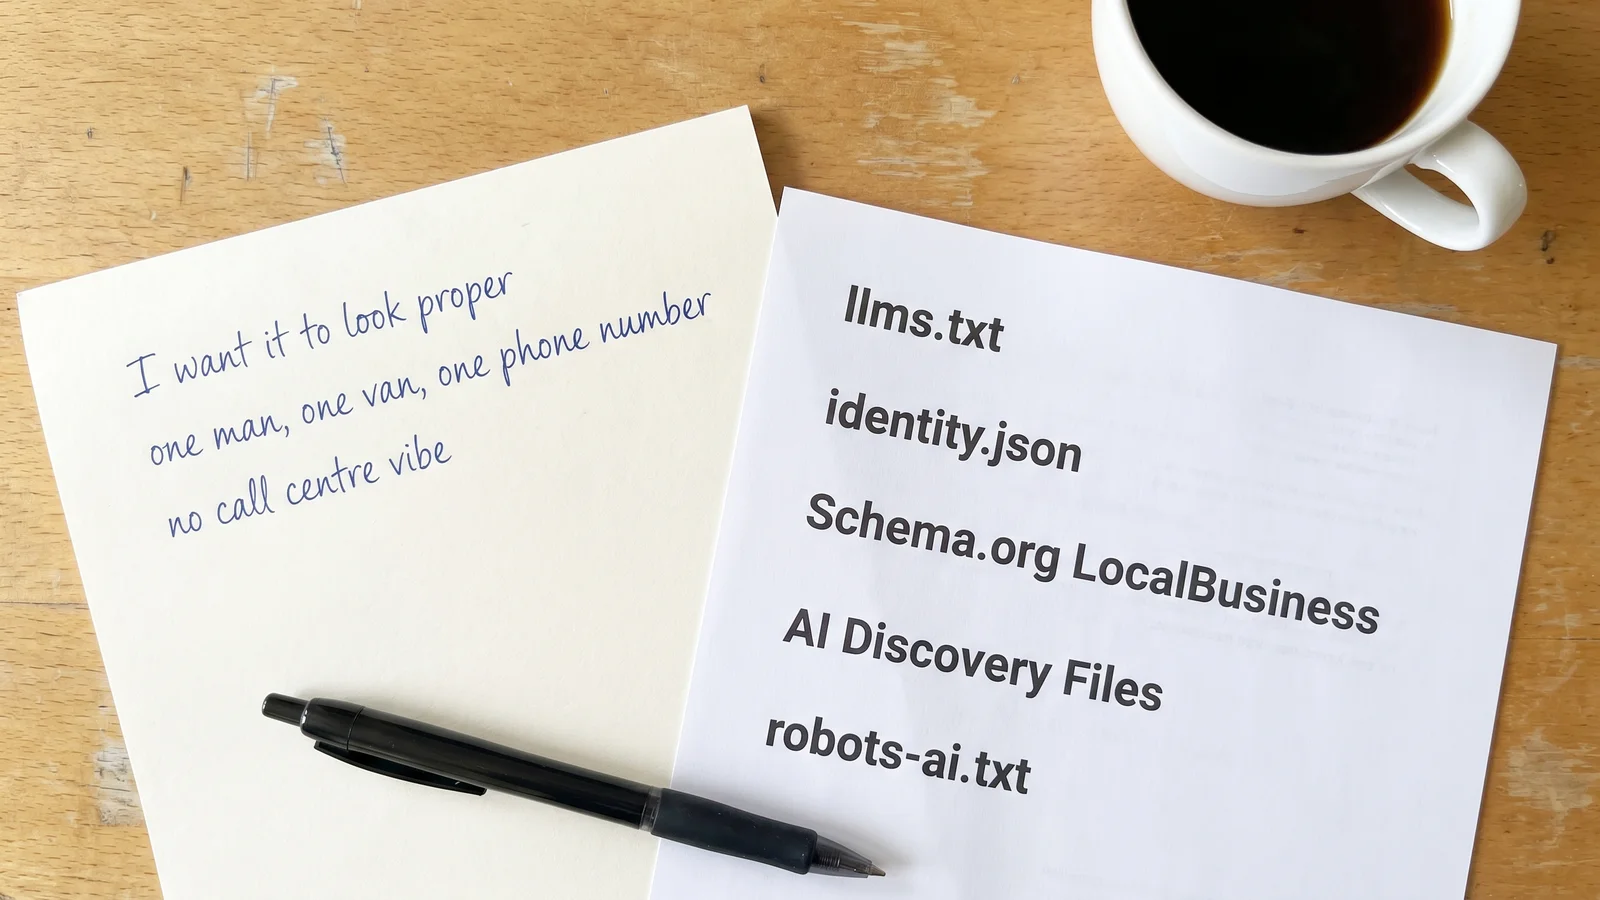 I want it to look proper
one man, one van, one phone number
no call centre vibe
llms.txt
identity.json
Schema.org LocalBusiness
AI Discovery Files
robots-ai.txt